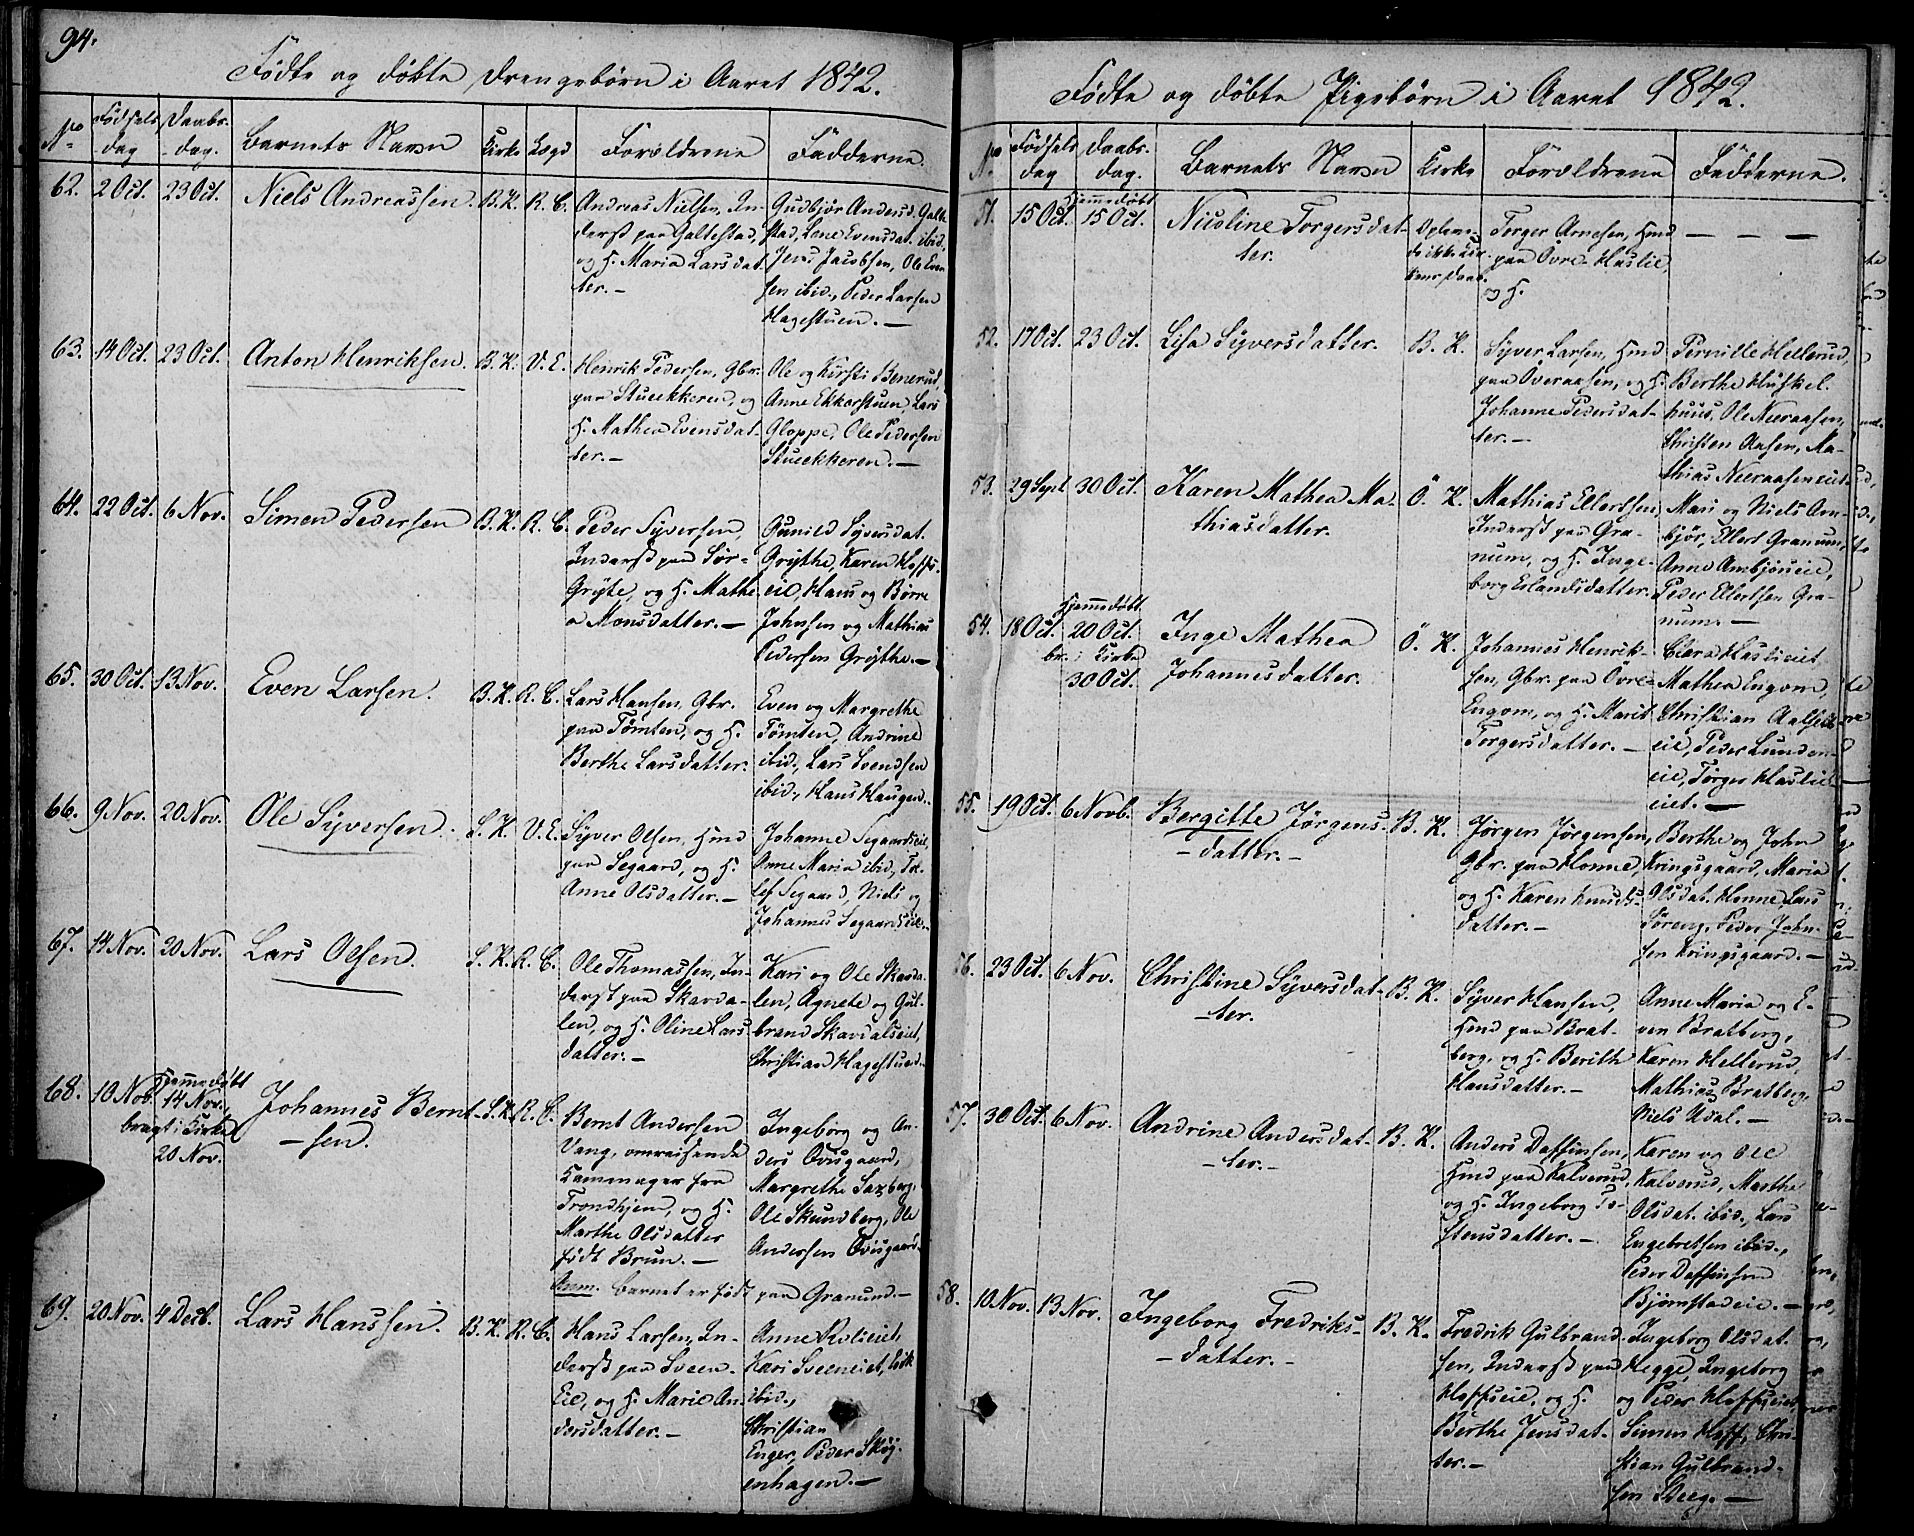 94.
Födte og döbte Drengebörn i Aaret 1842.
No Födsels dag Daabs. dag. Barnets Navn Kirke Lægd Forældrene Fadderne.
62. 2 Oct. 23 Oct. Niels Andreassen. B. K. R. C.
Andreas Nielsen, In-
derst paa Galtestad,
og H. Maria Larsdat
ter. —
Gudbjör Andersd. Galte
stad, Lene Evensdat. ibid,
Jens Jacobsen, Ole Even
sen ibid., Peder Larsen
Hagestuen. —
63. 14 Oct. 23 Oct. Anton Henriksen. B. K. V. E.
Henrik Pedersen, Gbr.
paa Stueekkeren, og
H. Mathea Evensdat-
ter. —
Ole og Kirsti Benerud,
Anne Ekkerstuen, Lars
Gloppe, Ole Pedersen
Stueekkeren. —
64. 22 Oct. 6 Nov. Simen Pedersen B. K. R. C.
Peder Syversen,
Inderst paa Sör-
Gröyte, og H. Mathe
a Monsdatter. —
Gunild Syversdat.
Gröythe, Karen Hoffs-
eie, Hans og Börre
Johnsen og Mathias
Pedersen Gröythe. —
65. 30 Oct. 13 Nov. Even Larsen. B. K. R. C.
Lars Hansen, Gbr.
paa Tömten, og H.
Berthe Larsdatter.
Even og Margrethe
Tömten, Andrine
ibid., Lars Svendsen
ibid., Hans Haugen.
66. 9 Nov. 20 Nov. Ole Syversen. S. K. V. E.
Syver Olsen, Hmd
paa Segaard, og H.
Anne Olsdatter. —
Johanne Segaardseie,
Anne Maria ibid, To-
lef Segaard, Niels og
Johannes Segaardseie.
67. 14 Nov. 20 Nov. Lars Olsen. S. K. R. C.
Ole Thomassen, In-
derst paa Skavda-
len, og H. Oline Lars
datter. —
Kari og Ole Skavda-
len, Agnete og Gul-
brand Skavdalseiet,
Christian Hagestuen.
68. 10 Nov. Hjemmedöbt
14 Nov.,
bragt i Kirke
20 Nov.
Johannes Bernt-
-sen. S. K. R. C.
Bernt Andersen
Vang, omreisende
Kammager fra
Trondhjem, og H.
Marthe Olsdatter
födt Brun. —
Anm. Barnet er födt paa Granund. —
Ingeborg og An-
ders Ovsgaard,
Margrethe Saxberg,
Ole Skundberg, Ole
Andersen Ovsgaard.
69. 20 Nov. 4 Decb. Lars Hanssen. B. K. R. C.
Hans Larsen, In-
derst paa Sveen
Eie, og H. Marie An-
dersdatter. —
Anne Rolieiet,
Kari Sveeneiet,
ibid.,
Christian
Enger, Peder Skoy-
enhagen. —
Födte og döbte Pigebörn i Aaret 1842.
No Födsels dag Daabs. dag. Barnets Navn Kirke Forældrene Fadderne.
51. 15 Oct. Hjemmedöbt
15 Oct. Nicoline Torgersdat-
ter.
Torger Arnesen, Hmd
paa Övre-Haslie,
og H.
— — —
52. 17 Oct. 23 Oct. Lisa Syversdatter. B. K.
Syver Larsen, Hmd
paa Overaasen, og H.
Johanne Pedersdat-
ter. —
Pernille Hellerud,
Berthe Huskel-
huus, Ole Neeraasen,
Christen Aasen, Ma-
thias Neeraaseneiet
53. 29 Sept 30 Oct. Karen Mathea Ma-
thiasdatter. Ö. K.
Mathias Ellertsen,
Inderst paa Gra-
num, og H. Inge-
borg Erlandsdatter.
Mari og Niels Arn-
björ, Ellert Granum,
Anne Arnbjöreie,
Peder Ellertsen Gra-
num. —
54. 18 Oct. Hjemmedöbt
20 Oct.
br. i Kirke
30 Oct.
Inge Mathea
Johannesdatter. Ö. K.
Johannes Henrik-
sen, Gbr. paa Övre-
Engom, og H. Marit
Torgersdatter. —
Clara Haslieeiet
Mathea Engom,
Christian Aalset-
eie, Peder Lunden-
eie, Torger Haslie-
eiet. —
55. 19 Oct. 6 Novb. Bergitte Jörgens-
-datter. — B. K.
Jörgen Jörgensen,
Gbr. paa Honne,
og H. Karen Knuds-
datter. —
Berthe og John
Kringsgaard, Maria
Olsdat. Honne, Lars
Söreng, Peder John-
sen Kringsgaard. —
56. 23 Oct. 6 Nov. Christine Syversdat-
-ter. B. K.
Syver Hansen,
Hmd paa Brat-
berg, og H. Berith
Hansdatter. —
Anne Maria og E-
ven Bratberg,
Karen Hellerud,
Mathias Bratberg,
Niels Udal. —
57. 30 Oct. 6 Nov. Andrine Andersdat-
-ter. — B. K.
Anders Daffinsen,
Hmd paa Kalverud,
og H. Ingeborg To-
stensdatter. —
Karen og Ole
Kalverud, Marthe
Olsdat. ibid., Lars
Engebretsen ibid.,
Peder Daffinsen
Bjørnstadeie. —
58. 10 Nov. 13 Nov. Ingeborg Fredriks-
-datter. — B. K.
Fredrik Gulbrand-
sen, Inderst paa
Hoffseie, og H.
Berthe Jensdat-
ter. —
Ingeborg Olsdat.
Hegge, Ingeborg
og Peder Hoffseiet
Simen Hoff, Chri-
stian Gulbrand-
sen Steeg. —